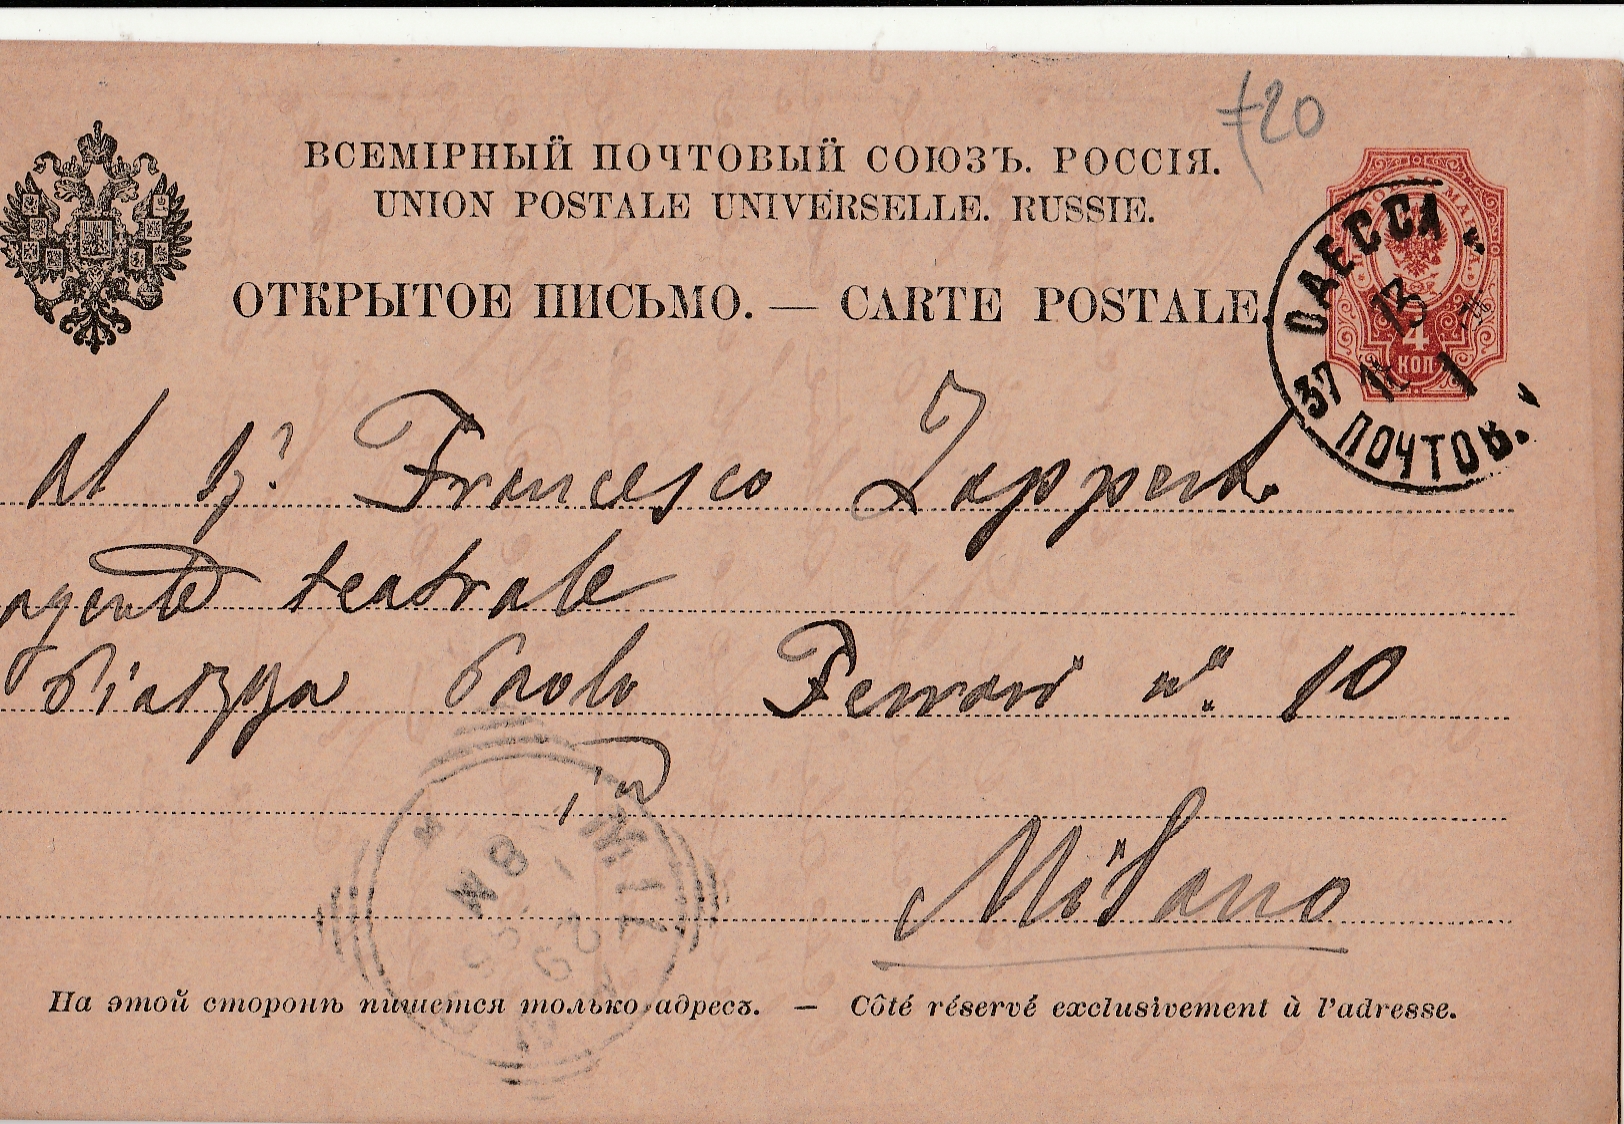 720
ВСЕМІРНЫЙ ПОЧТОВЫЙ СОЮЗЪ. РОССІЯ.
UNION POSTALE UNIVERSELLE. RUSSIE.
ОТКРЫТОЕ ПИСЬМО. — CARTE POSTALE.
МАРКА
4
КОП
ОДЕССА
13
37 1
ПОЧТОВ.
Al Francesco Zappert
agente teatrale
Piazza Paolo Ferrari n° 10
in
Milano
MIL
8 M
На этой сторонѣ пишется только адресъ. — Côté réservé exclusivement à l'adresse.